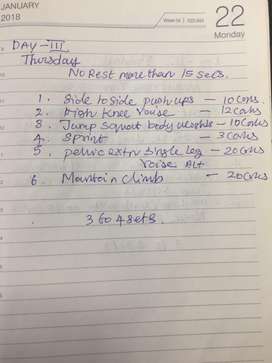 JANUARY
2018
22
Monday
DAY - III
Thursday
No Rest more than 15 secs.
1. Side to side push ups - 10 Conts
2. High Knee raise - 12 Conts
3. Jump Squat body weights - 10 Conts
4. Sprint - 3 Conts
5. pelvic extn single leg - 20 Conts
raise Alt
6. Mountain climb - 20 Conts
3 to 4 sets.